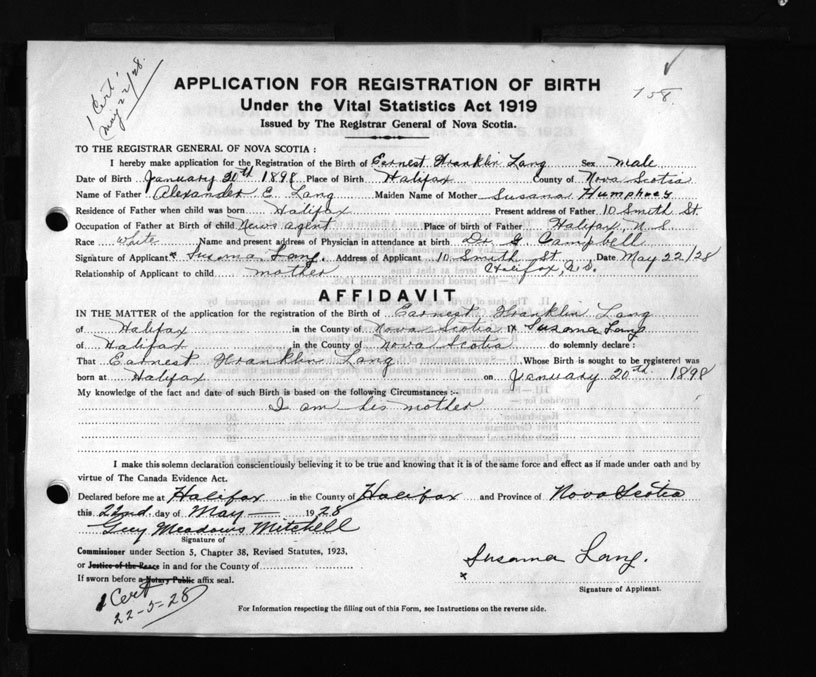 1 Cert.
May 22/28.
158.
APPLICATION FOR REGISTRATION OF BIRTH
Under the Vital Statistics Act 1919
Issued by The Registrar General of Nova Scotia.
TO THE REGISTRAR GENERAL OF NOVA SCOTIA :
I hereby make application for the Registration of the Birth of Earnest Franklin Lang Sex Male
Date of Birth January 20th 1898 Place of Birth Halifax County of Nova Scotia
Name of Father Alexander E. Lang Maiden Name of Mother Susana Humphrey
Residence of Father when child was born Halifax Present address of Father 10 Smith St.
Occupation of Father at Birth of child News agent Place of birth of Father Halifax, N.S.
Race White Name and present address of Physician in attendance at birth Dr. G Campbell
Signature of Applicant x Susana Lang. Address of Applicant 10 Smith St. Date May 22/28
Relationship of Applicant to child mother Halifax, N.S.
AFFIDAVIT
IN THE MATTER of the application for the registration of the Birth of Earnest Franklin Lang
of Halifax in the County of Nova Scotia I x Susana Lang
of Halifax in the County of Nova Scotia do solemnly declare :
That Earnest Franklin Lang Whose Birth is sought to be registered was
born at Halifax on January 20th 1898
My knowledge of the fact and date of such Birth is based on the following Circumstances :-
I am his mother
I make this solemn declaration conscientiously believing it to be true and knowing that it is of the same force and effect as if made under oath and by
virtue of The Canada Evidence Act.
Declared before me at Halifax in the County of Halifax and Province of Nova Scotia
this 22nd day of May 1928
Guy Meadows Mitchell
Signature of
Commissioner under Section 5, Chapter 38, Revised Statutes, 1923,
or Justice of the Peace in and for the County of
If sworn before a Notary Public affix seal.
x Susana Lang.
Signature of Applicant.
1 Cert
22-5-28
For Information respecting the filling out of this Form, see Instructions on the reverse side.